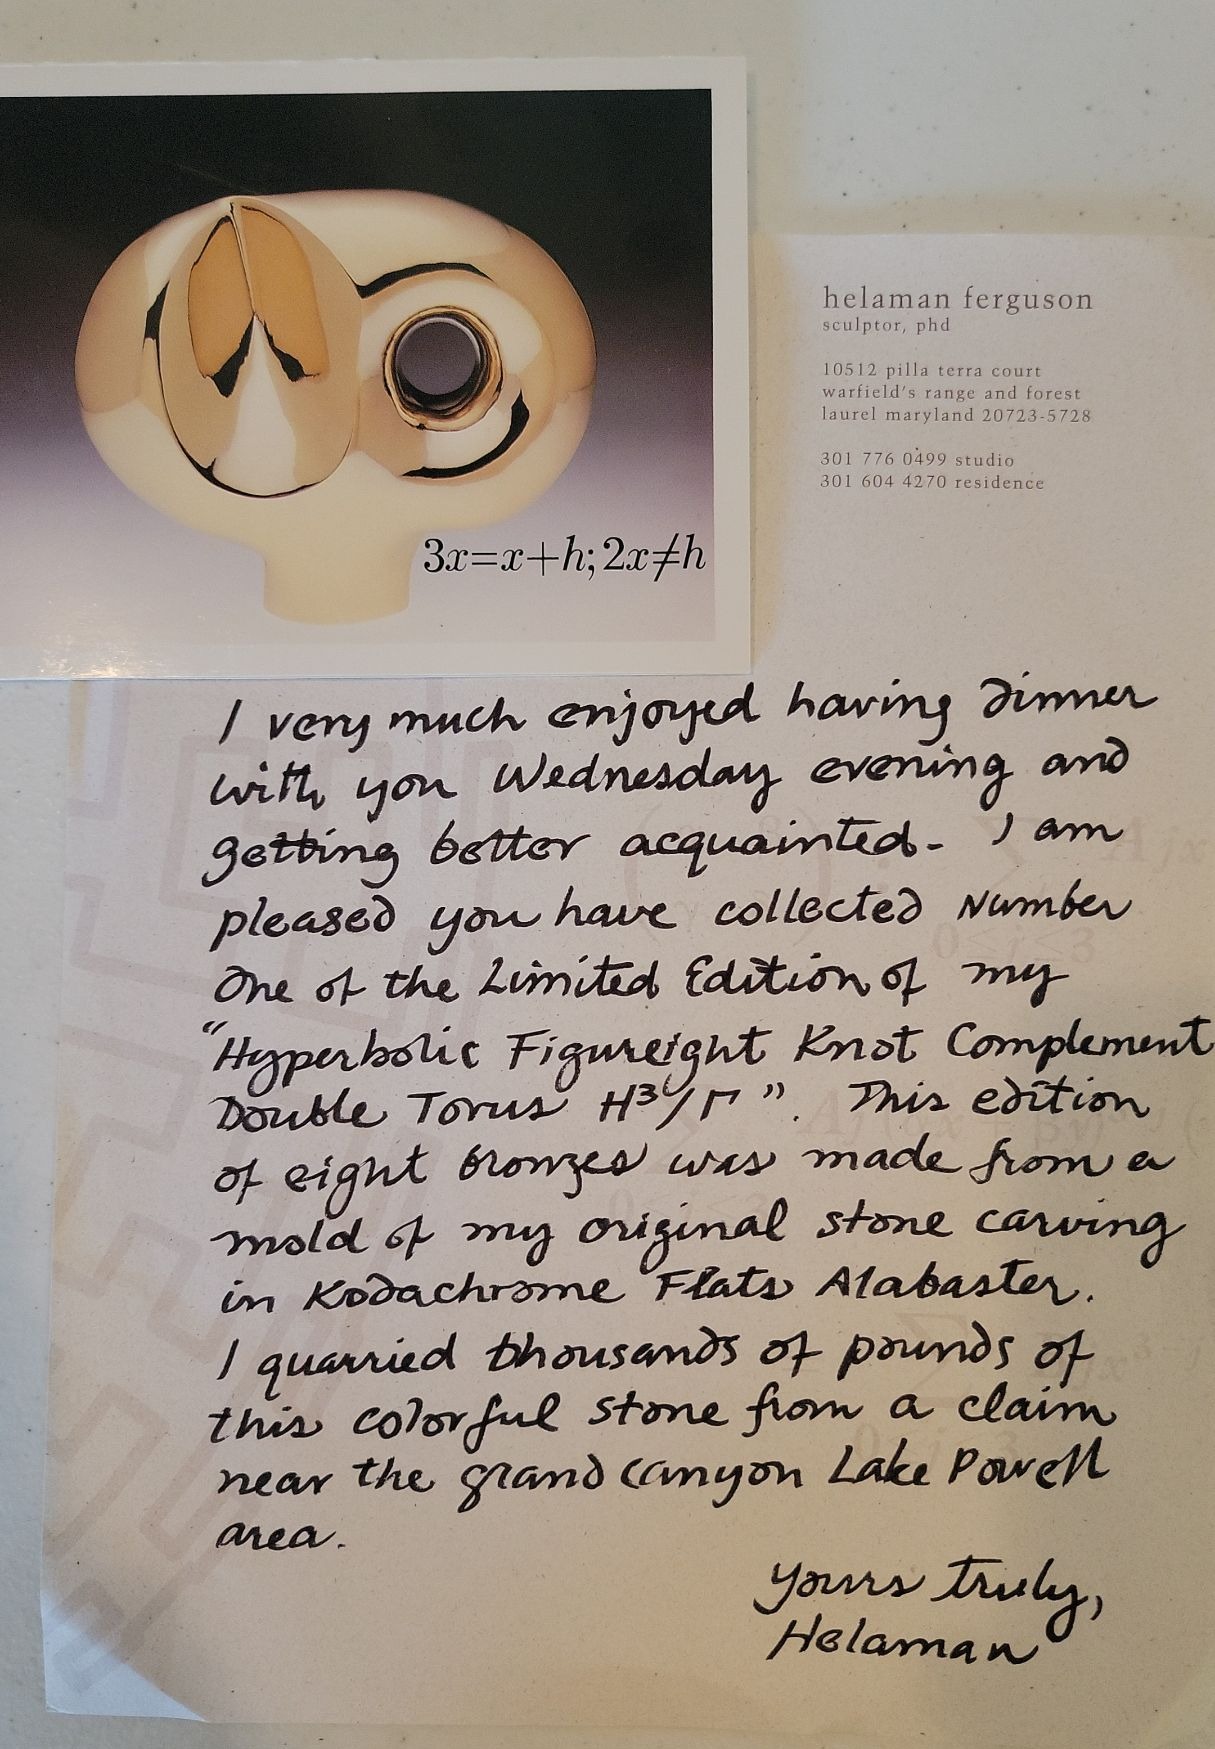 3x=x+h; 2x≠h
helaman ferguson
sculptor, phd
10512 pilla terra court
warfield's range and forest
laurel maryland 20723-5728
301 776 0499 studio
301 604 4270 residence
I very much enjoyed having dinner
with you Wednesday evening and
getting better acquainted. I am
pleased you have collected Number
One of the Limited Edition of my
"Hyperbolic Figureight Knot Complement
Double Torus H³/Γ". This edition
of eight bronzes was made from a
mold of my original stone carving
in Kodachrome Flats Alabaster.
I quarried thousands of pounds of
this colorful stone from a claim
near the grand canyon Lake Powell
area.
Yours truly,
Helaman